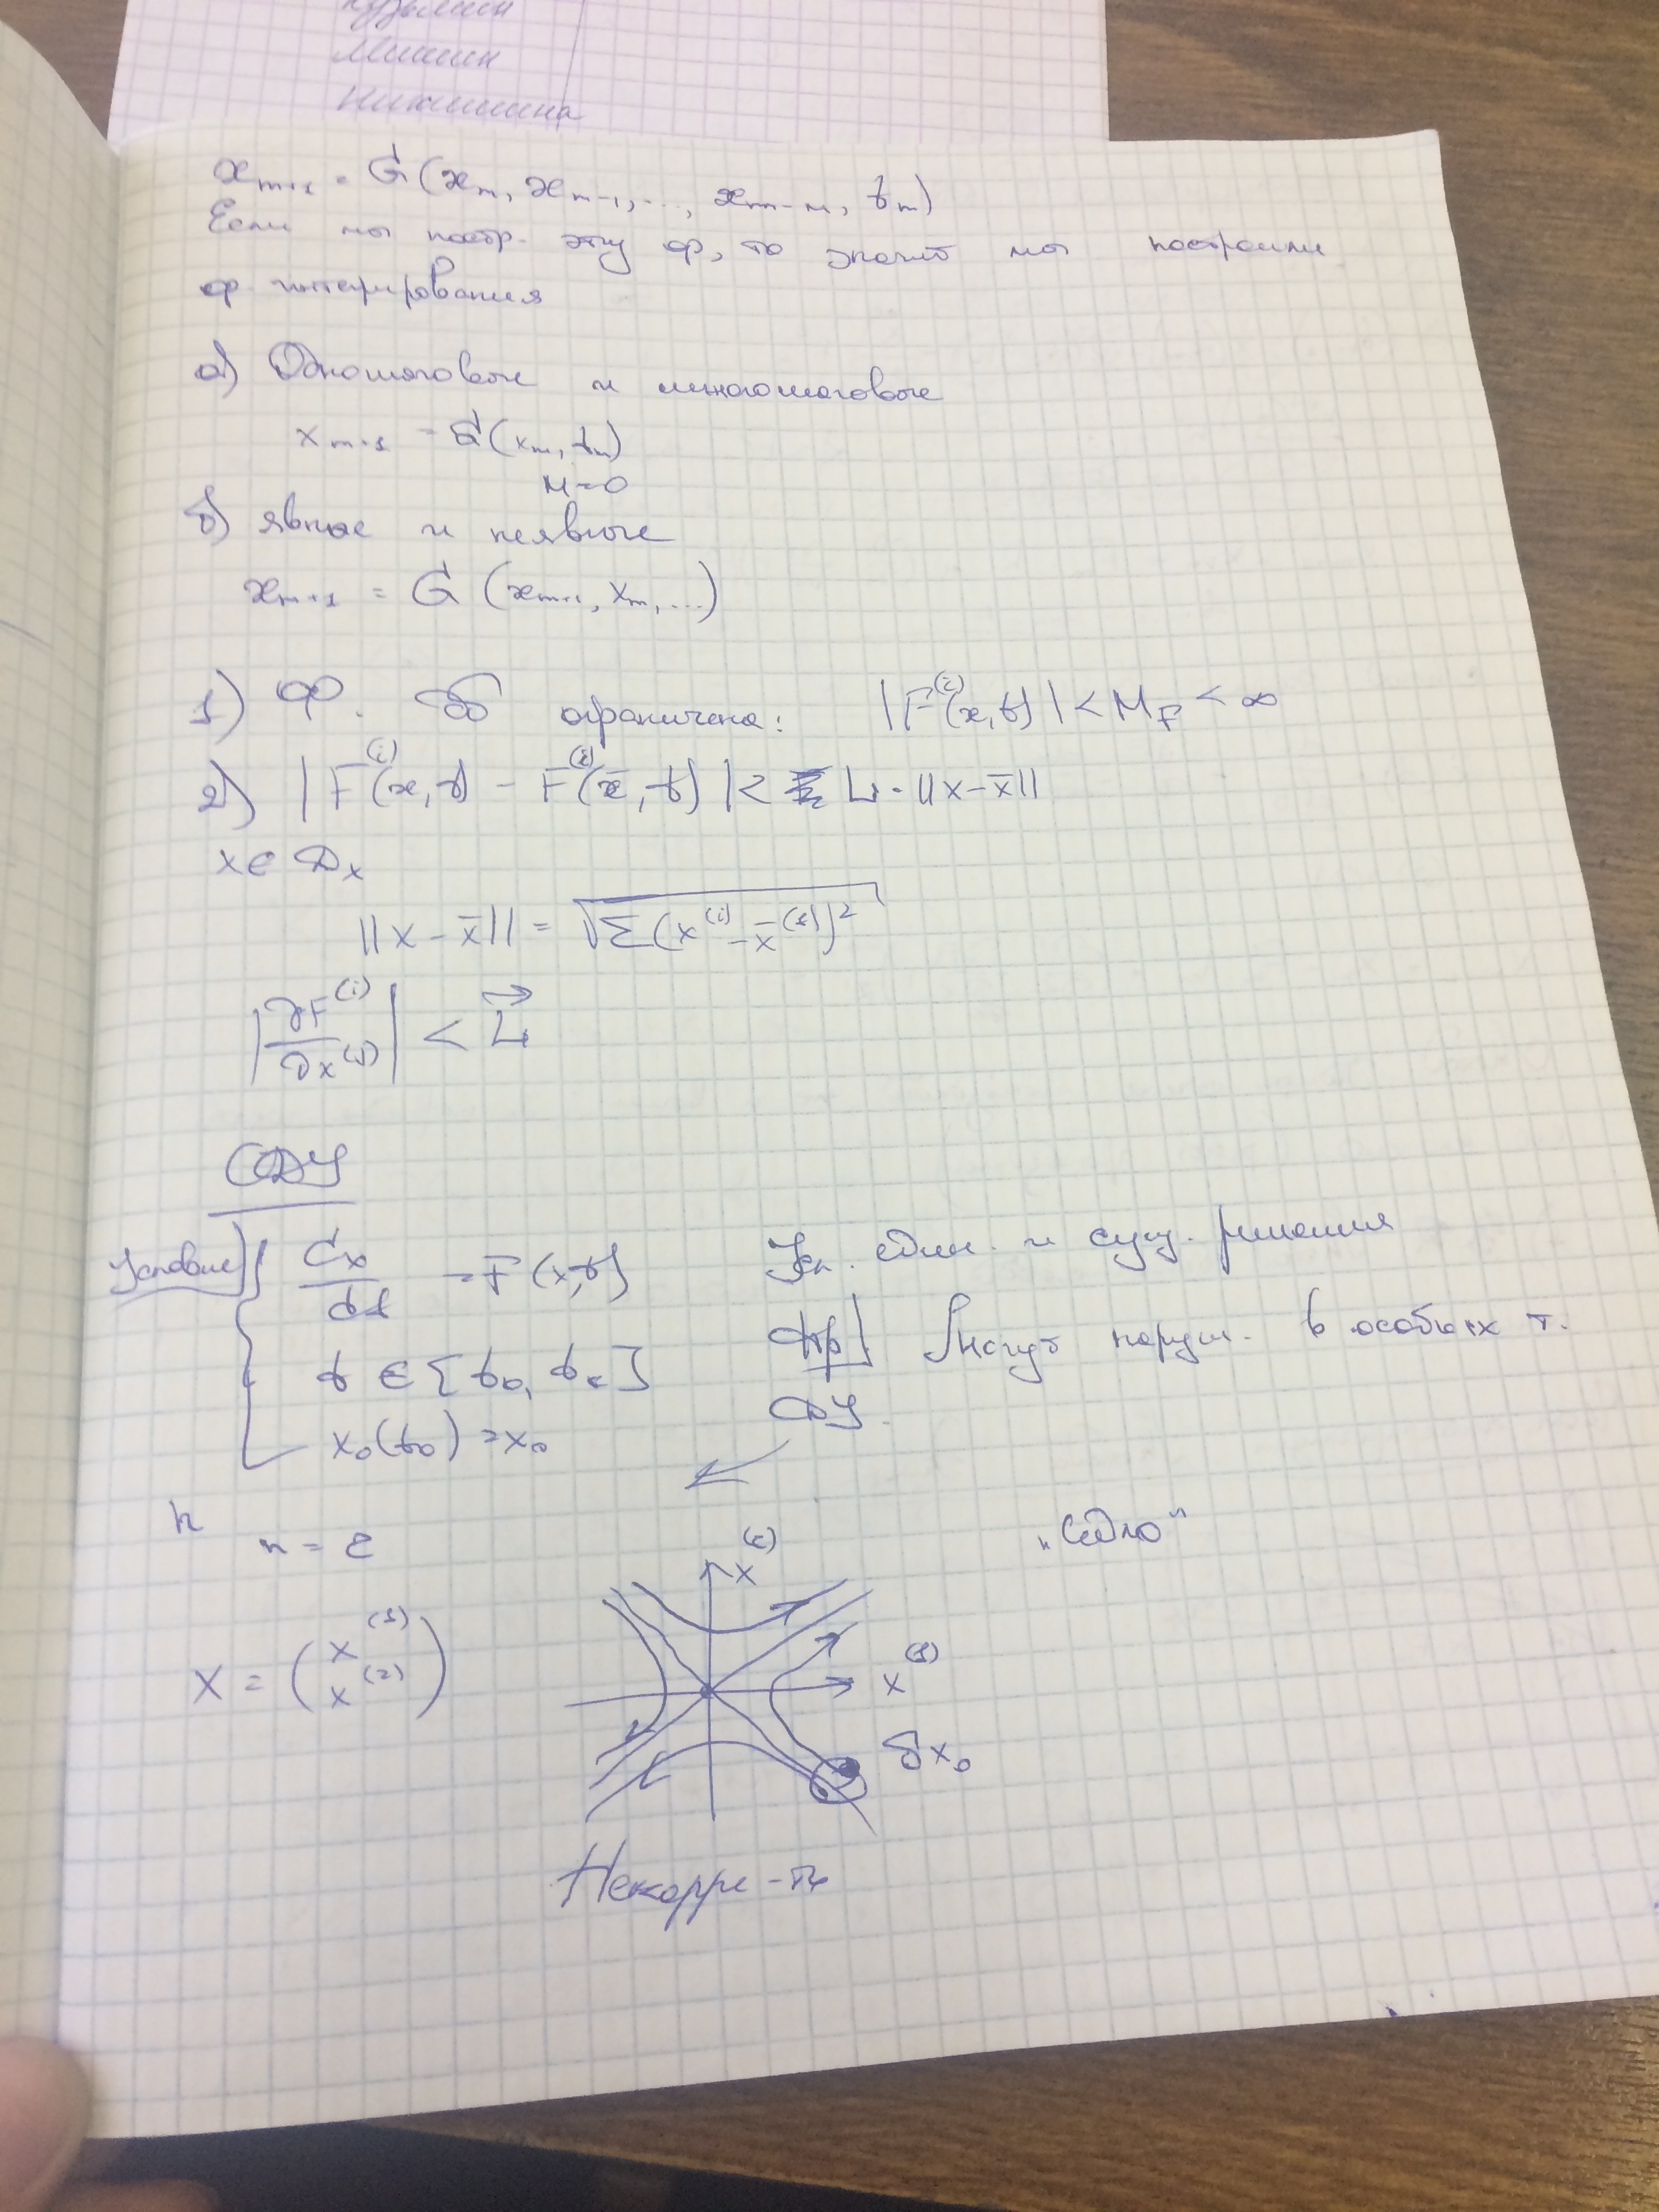 Мишин
Никишина
x_{m+1} = G(x_m, x_{m-1}, ..., x_{m-M}, t_m)
Если мы постр. эту ф, то значит мы построили
ф интегрирования
а) Одношаговые и многошаговые
x_{m+1} = G(x_m, t_m)
M=0
б) явные и неявные
x_{m+1} = G (x_{m+1}, x_m, ...)
1) Ф. ограничена: |F^{(i)}(x,t)| < M_F < ∞
2) |F^{(i)}(x,t) - F^{(i)}(x̄,t)| < L · ||x-x̄||
x ∈ D_x
||x-x̄|| = √Σ(x^{(i)} - x̄^{(i)})²
|∂F^{(i)}/∂x^{(j)}| < L
СДУ
Условие dx/dt = F(x,t) Усл. един. и сущ. решения
t ∈ [t_0, t_k] Могут наруш. в особых т.
x_0(t_0) = x_0 ДУ.
n
n = 2 x^{(2)} „Седло"
X = (x^{(1)} x^{(2)}) x^{(1)}
δx_0
Некорре-ть